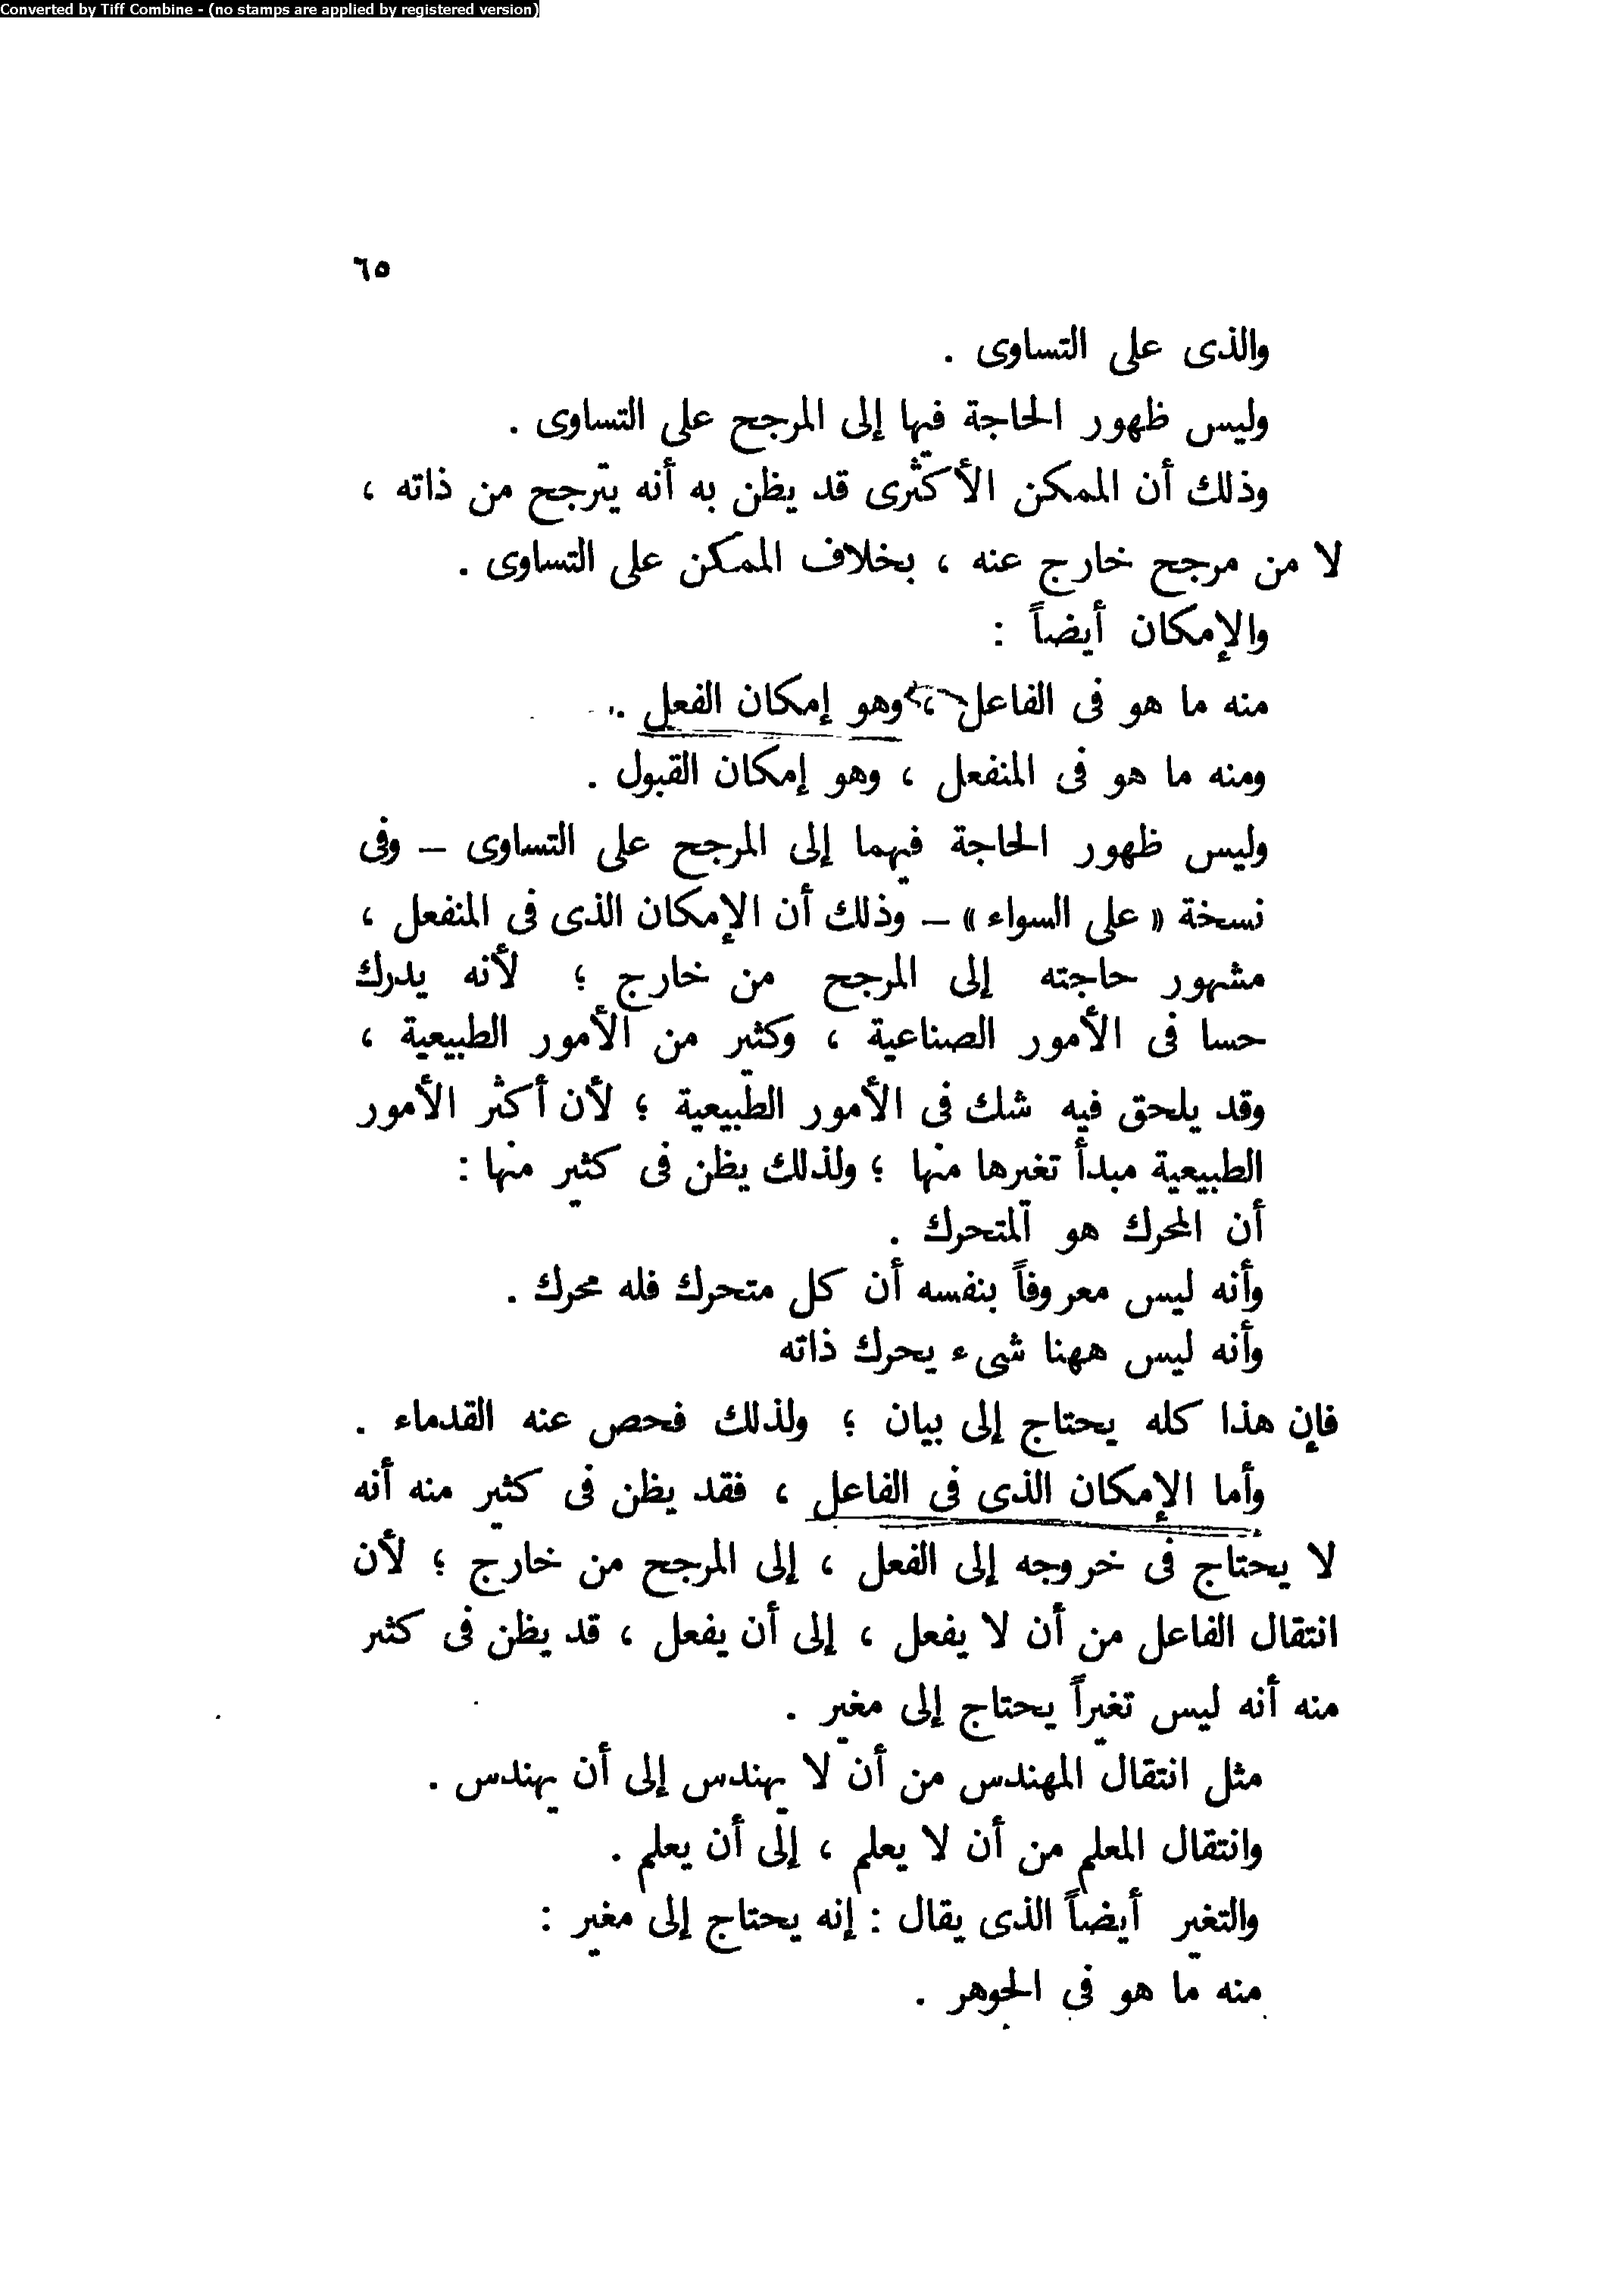 Converted by Tiff Combine - (no stamps are applied by registered version)
٦٥
والذى على التساوى .
وليس ظهور الحاجة فيها إلى المرجح على التساوى .
وذلك أن الممكن الأكثرى قد يظن به أنه يترجح من ذاته ،
لا من مرجح خارج عنه ، بخلاف الممكن على التساوى .
والإمكان أيضاً :
منه ما هو فى الفاعل ، وهو إمكان الفعل .
ومنه ما هو فى المنفعل ، وهو إمكان القبول .
وليس ظهور الحاجة فيهما إلى المرجح على التساوى – وفى
نسخة « على السواء » – وذلك أن الإمكان الذى فى المنفعل ،
مشهور حاجته إلى المرجح من خارج ؛ لأنه يدرك
حسا فى الأمور الصناعية ، وكثير من الأمور الطبيعية ،
وقد يلحق فيه شك فى الأمور الطبيعية ؛ لأن أكثر الأمور
الطبيعية مبدأ تغيرها منها ؛ ولذلك يظن فى كثير منها :
أن المحرك هو المتحرك .
وأنه ليس معروفاً بنفسه أن كل متحرك فله محرك .
وأنه ليس ههنا شىء يحرك ذاته
فإن هذا كله يحتاج إلى بيان ؛ ولذلك فحص عنه القدماء .
وأما الإمكان الذى فى الفاعل ، فقد يظن فى كثير منه أنه
لا يحتاج فى خروجه إلى الفعل ، إلى المرجح من خارج ؛ لأن
انتقال الفاعل من أن لا يفعل ، إلى أن يفعل ، قد يظن فى كثير
منه أنه ليس تغيراً يحتاج إلى مغير .
مثل انتقال المهندس من أن لا يهندس إلى أن يهندس .
وانتقال المعلم من أن لا يعلم ، إلى أن يعلم .
والتغير أيضاً الذى يقال : إنه يحتاج إلى مغير :
منه ما هو فى الجوهر .